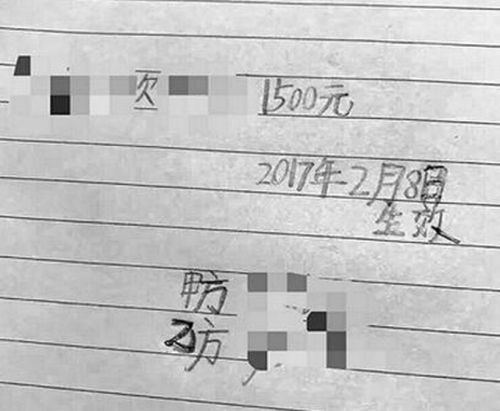 欠 1500元
2017年2月8日
生效
甲方
乙方